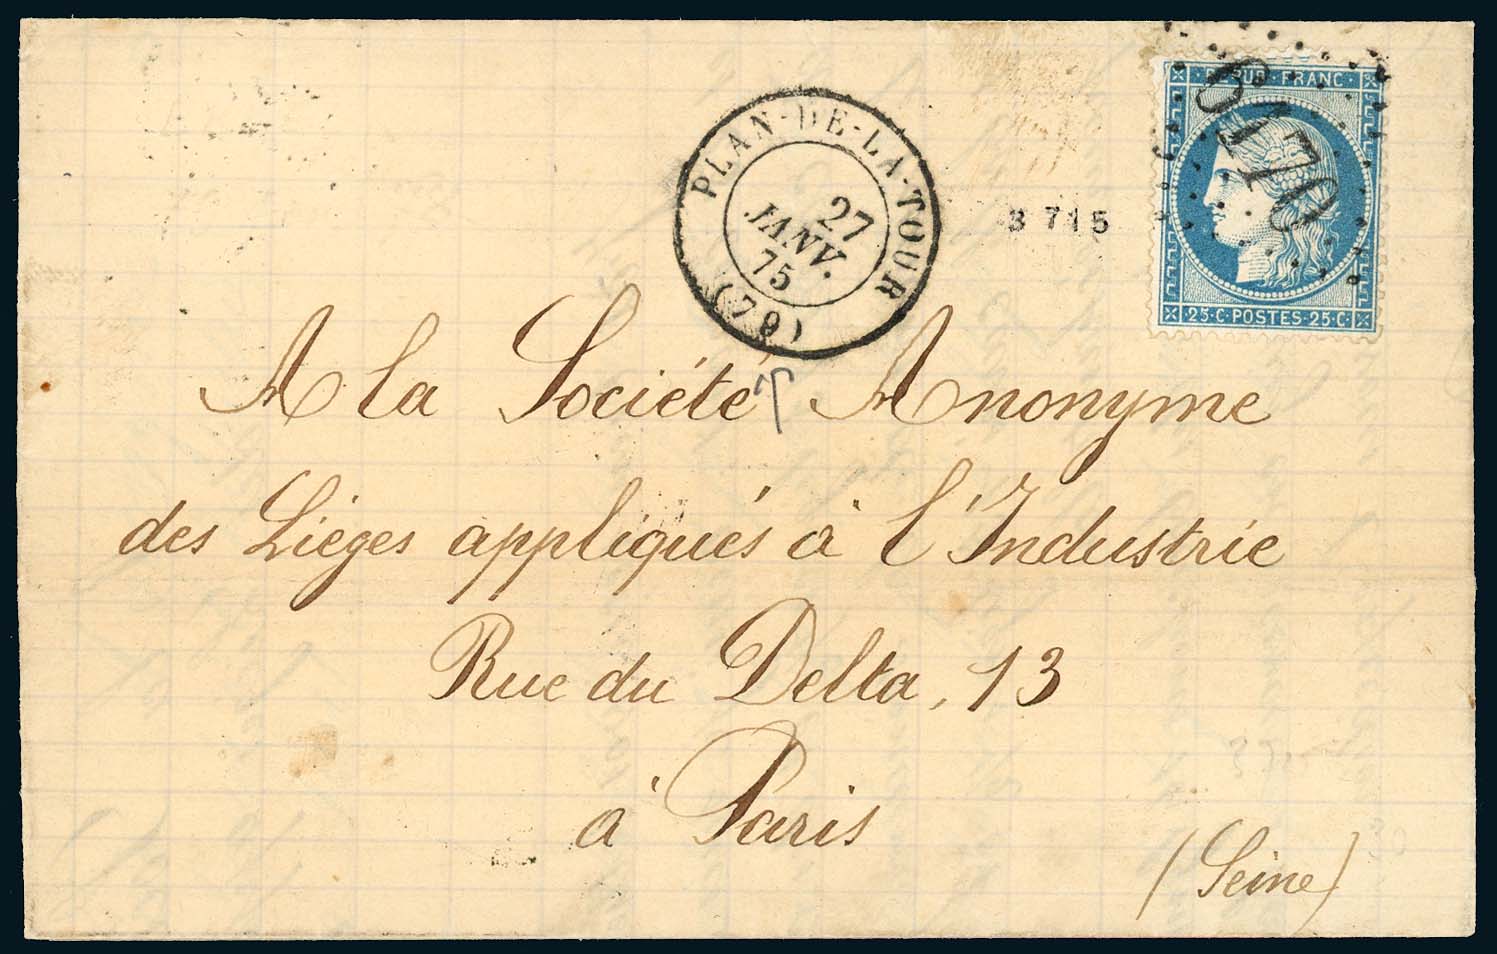 REPUB·FRANC·
6170
25·C·POSTES·25·C·
PLAN-DE-LA-TOUR
27
JANV.
75
(79)
3 715
A la Société Anonyme
des Lièges appliqués à l'Industrie
Rue du Delta, 13
à Paris
(Seine)